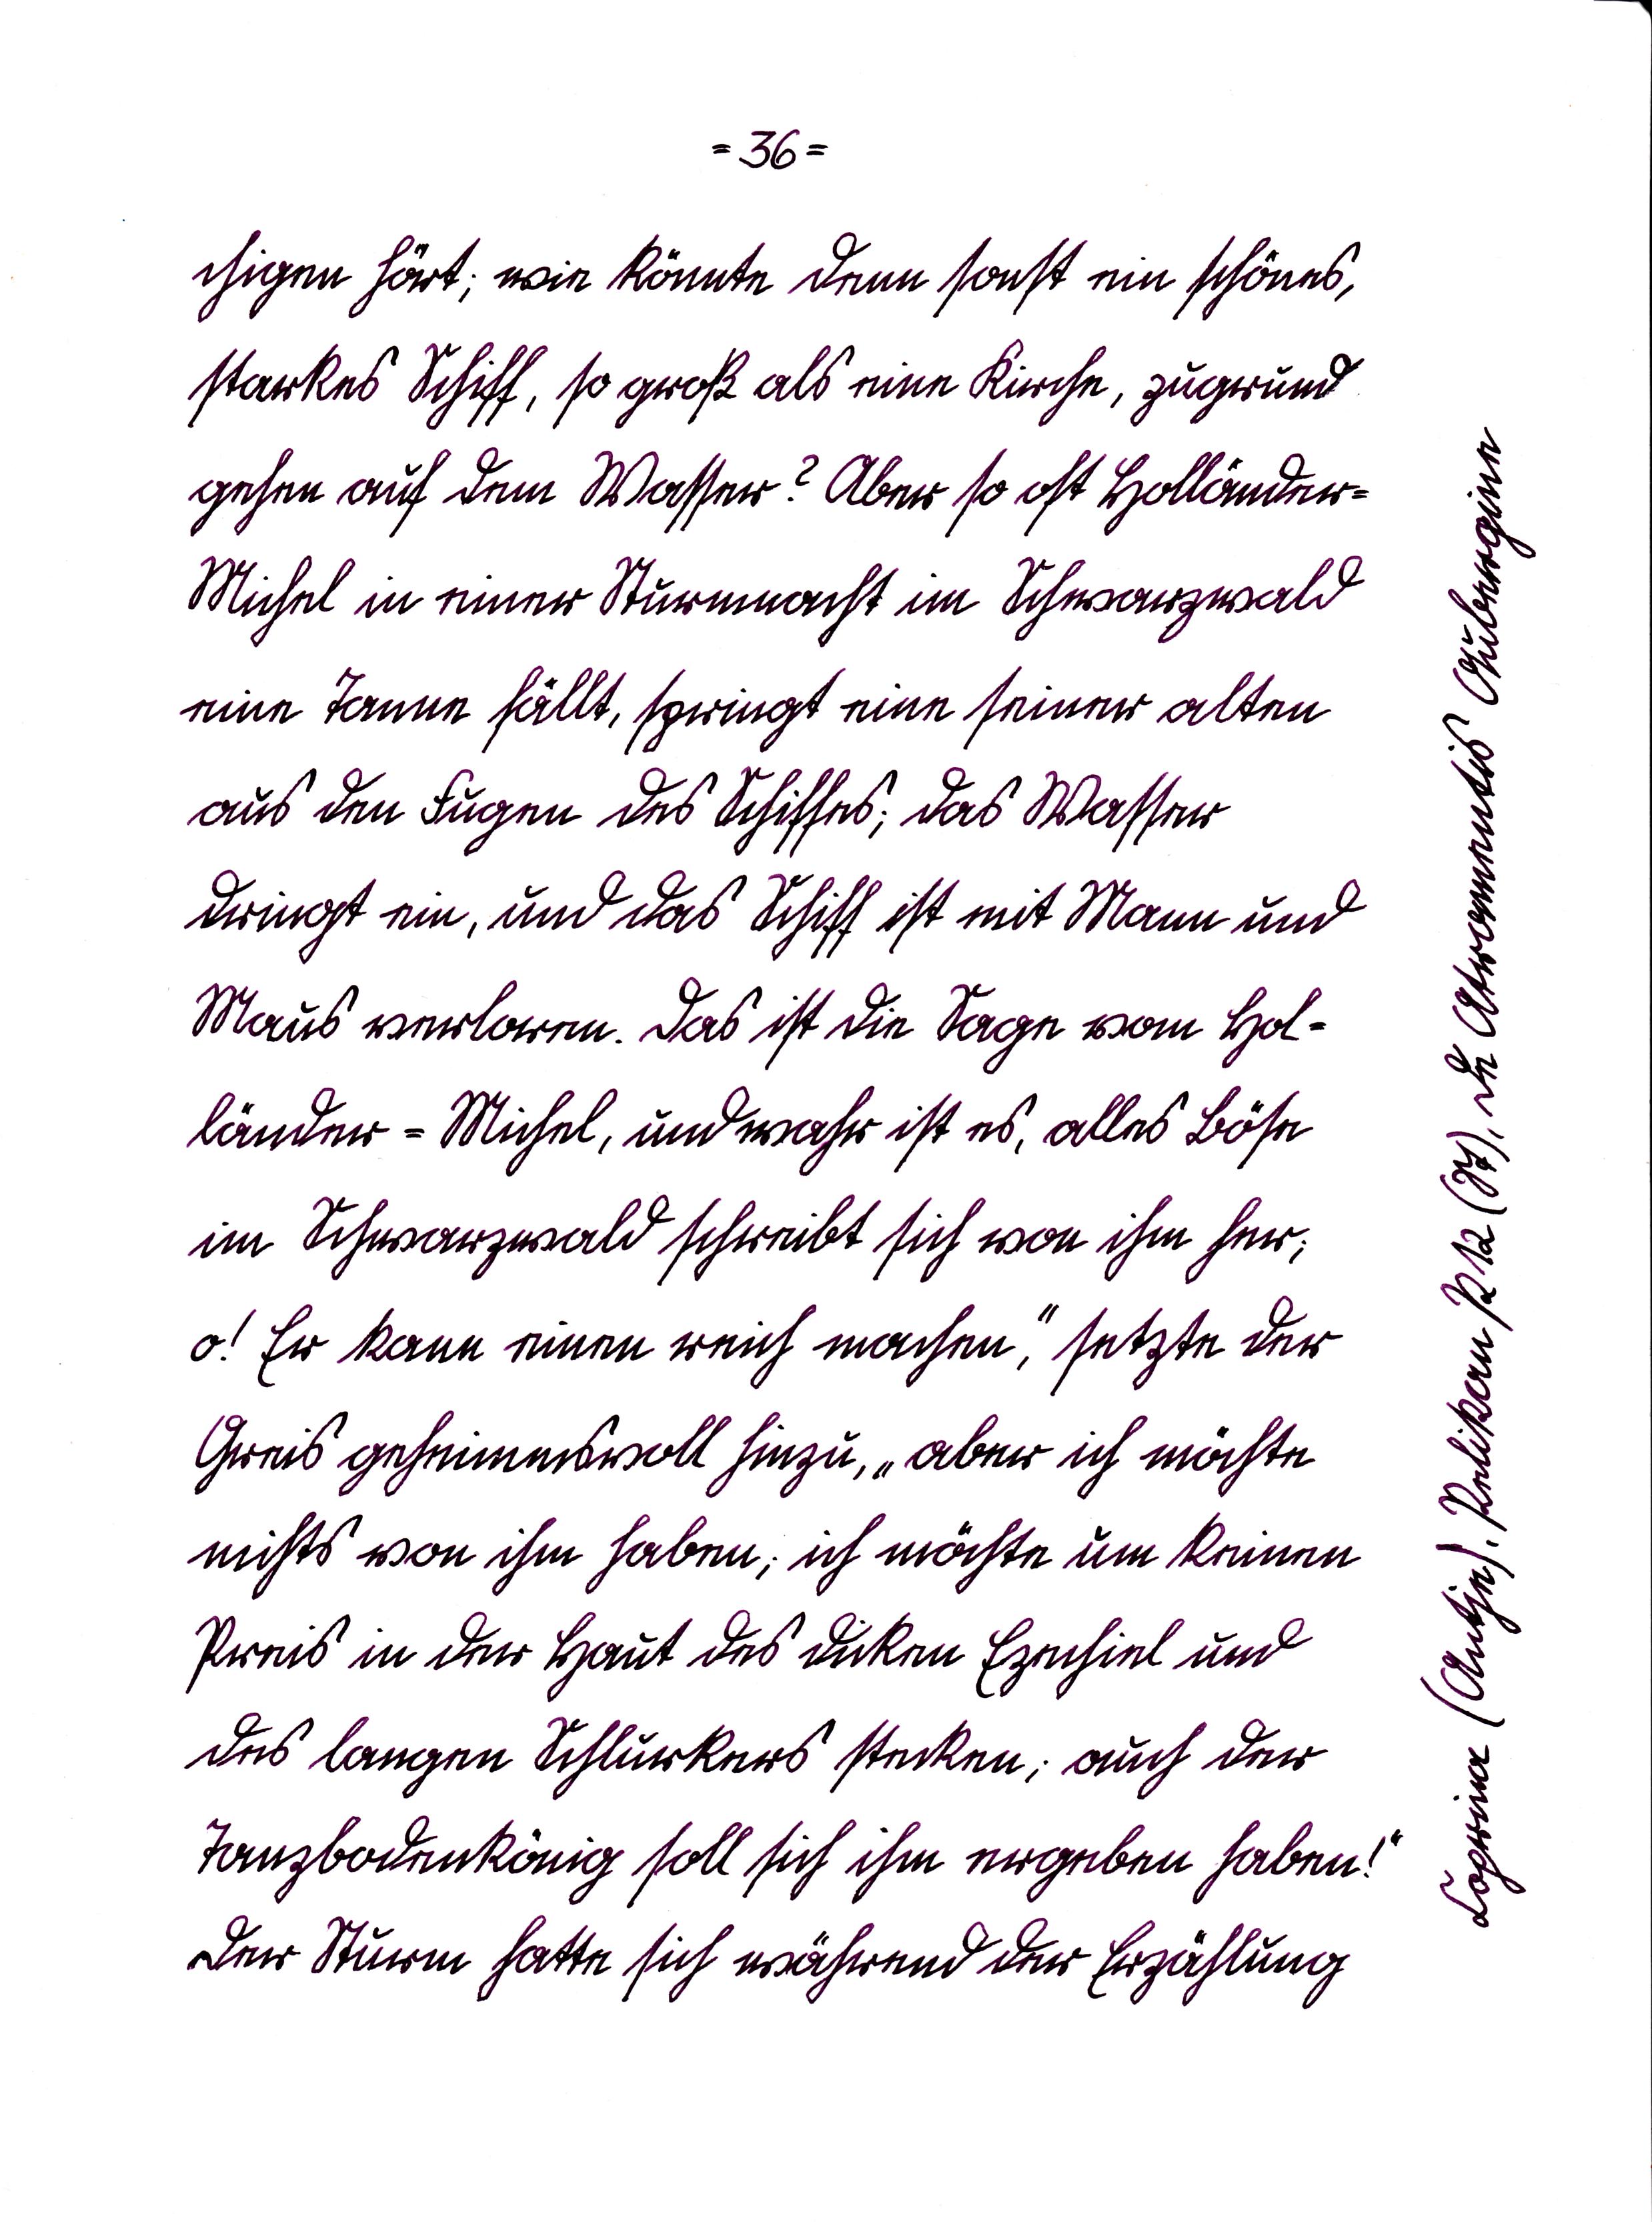 = 36 =
chigen hört; wie könnte denn sonst ein schönes,
starkes Schiff, so groß als eine Kirche, zugrund
gehen auf dem Wasser? Aber so oft Holländer=
Michel in einer Sturmnacht im Schwarzwald
eine Tanne fällt, springt eine seiner alten
aus den Fugen des Schiffes; das Wasser
dringt ein, und das Schiff ist mit Mann und
Maus verloren. Das ist die Sage vom Hol=
länder = Michel, und wahr ist es, alles Böse
im Schwarzwald schreibt sich von ihm her;
o! Er kann einen reich machen," setzte der
Greis geheimnisvoll hinzu, „aber ich möchte
nichts von ihm haben; ich möchte um keinen
Preis in der Haut des dicken Ezechiel und
des langen Schlurkers stecken; auch der
Tanzbodenkönig soll sich ihm ergeben haben!"
Der Sturm hatte sich während der Erzählung
(Antje), Pelikan P 12 (), De Atramentis Aubergine